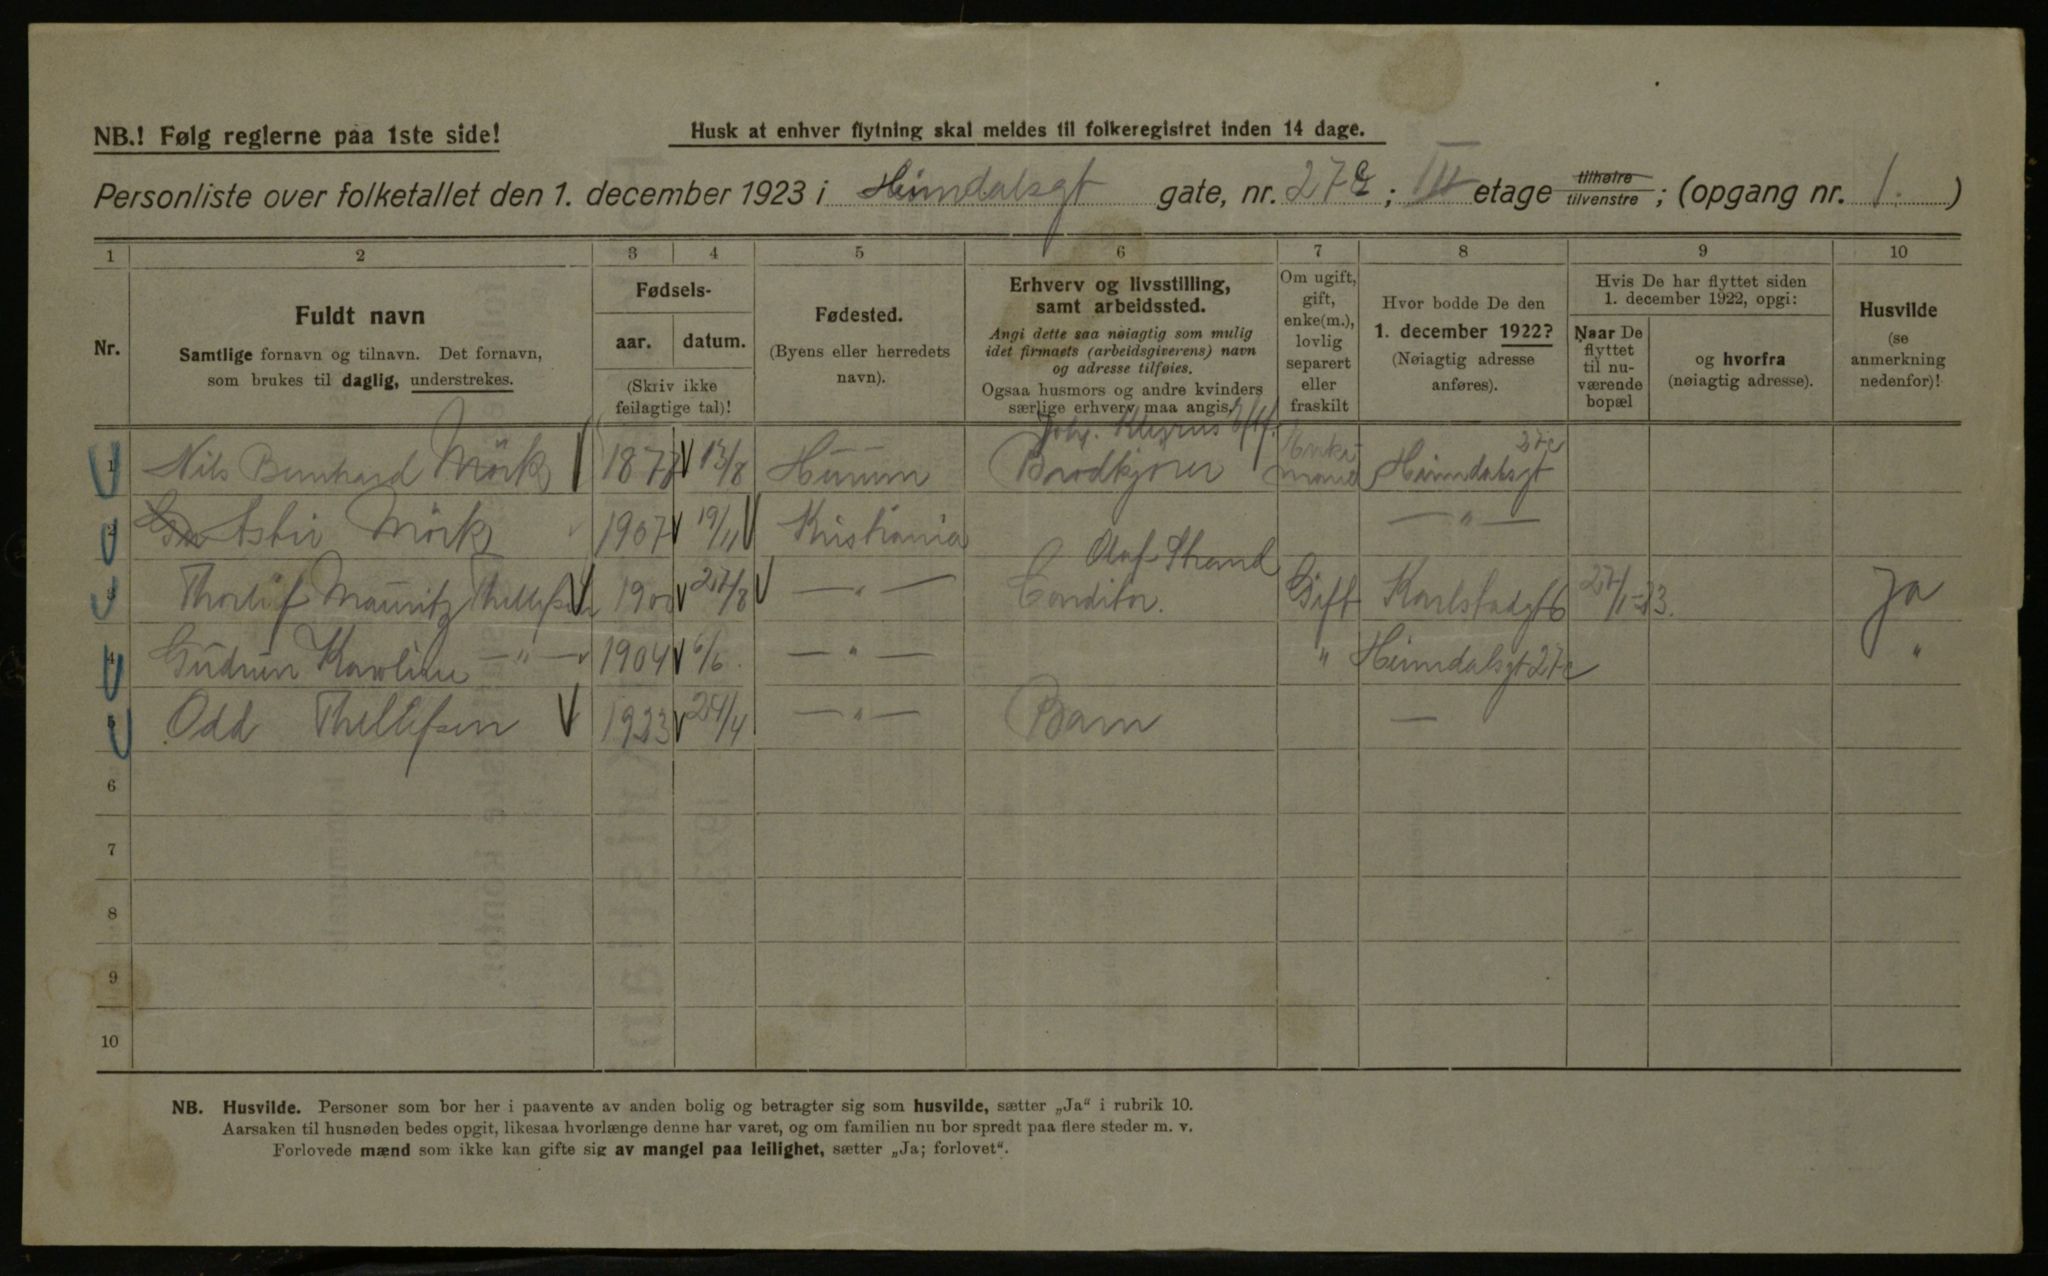 NB.! Følg reglerne paa 1ste side!
Husk at enhver flytning skal meldes til folkeregistret inden 14 dage.
Personliste over folketallet den 1. december 1923 i Heimdalsgt gate, nr. 27c; III etage tilhøire tilvenstre; (opgang nr. 1.)
1 2 3 4 5 6 7 8 9 10
Nr.
Fuldt navn
Samtlige fornavn og tilnavn. Det fornavn,
som brukes til daglig, understrekes.
Fødsels-
aar. datum.
(Skriv ikke
feilagtige tal)!
Fødested.
(Byens eller herredets
navn).
Erhverv og livsstilling,
samt arbeidssted.
Angi dette saa nøiagtig som mulig
idet firmaets (arbeidsgiverens) navn
og adresse tilføies.
Ogsaa husmors og andre kvinders
særlige erhverv maa angis.
Om ugift,
gift,
enke(m.),
lovlig
separert
eller
fraskilt
Hvor bodde De den
1. december 1922?
(Nøiagtig adresse
anføres).
Hvis De har flyttet siden
1. december 1922, opgi:
Naar De
flyttet
til nu-
værende
bopæl
og hvorfra
(nøiagtig adresse).
Husvilde
(se
anmerkning
nedenfor)!
1 Nils Bernhard Mörk 1878 13/8 Hurum Brødkjører Enke-mand Heimdalsgt 27c
2 Mörk 1907 19/11 Kristiania — " —
3 Thorleif Mauritz Thellefsen 1900 27/8 — " — Olaf Strand Conditor. Gift Karlstadgt 6 27/1-23. Ja
4 Gudrun Karoline — " — 1904 6/6. — " — " Heimdalsgt 27c "
5 Odd Thellefsen 1923 24/4 — " — Barn —
6
7
8
9
10
NB. Husvilde. Personer som bor her i paavente av anden bolig og betragter sig som husvilde, sætter „Ja" i rubrik 10.
Aarsaken til husnøden bedes opgit, likesaa hvorlænge denne har varet, og om familien nu bor spredt paa flere steder m. v.
Forlovede mænd som ikke kan gifte sig av mangel paa leilighet, sætter „Ja; forlovet".